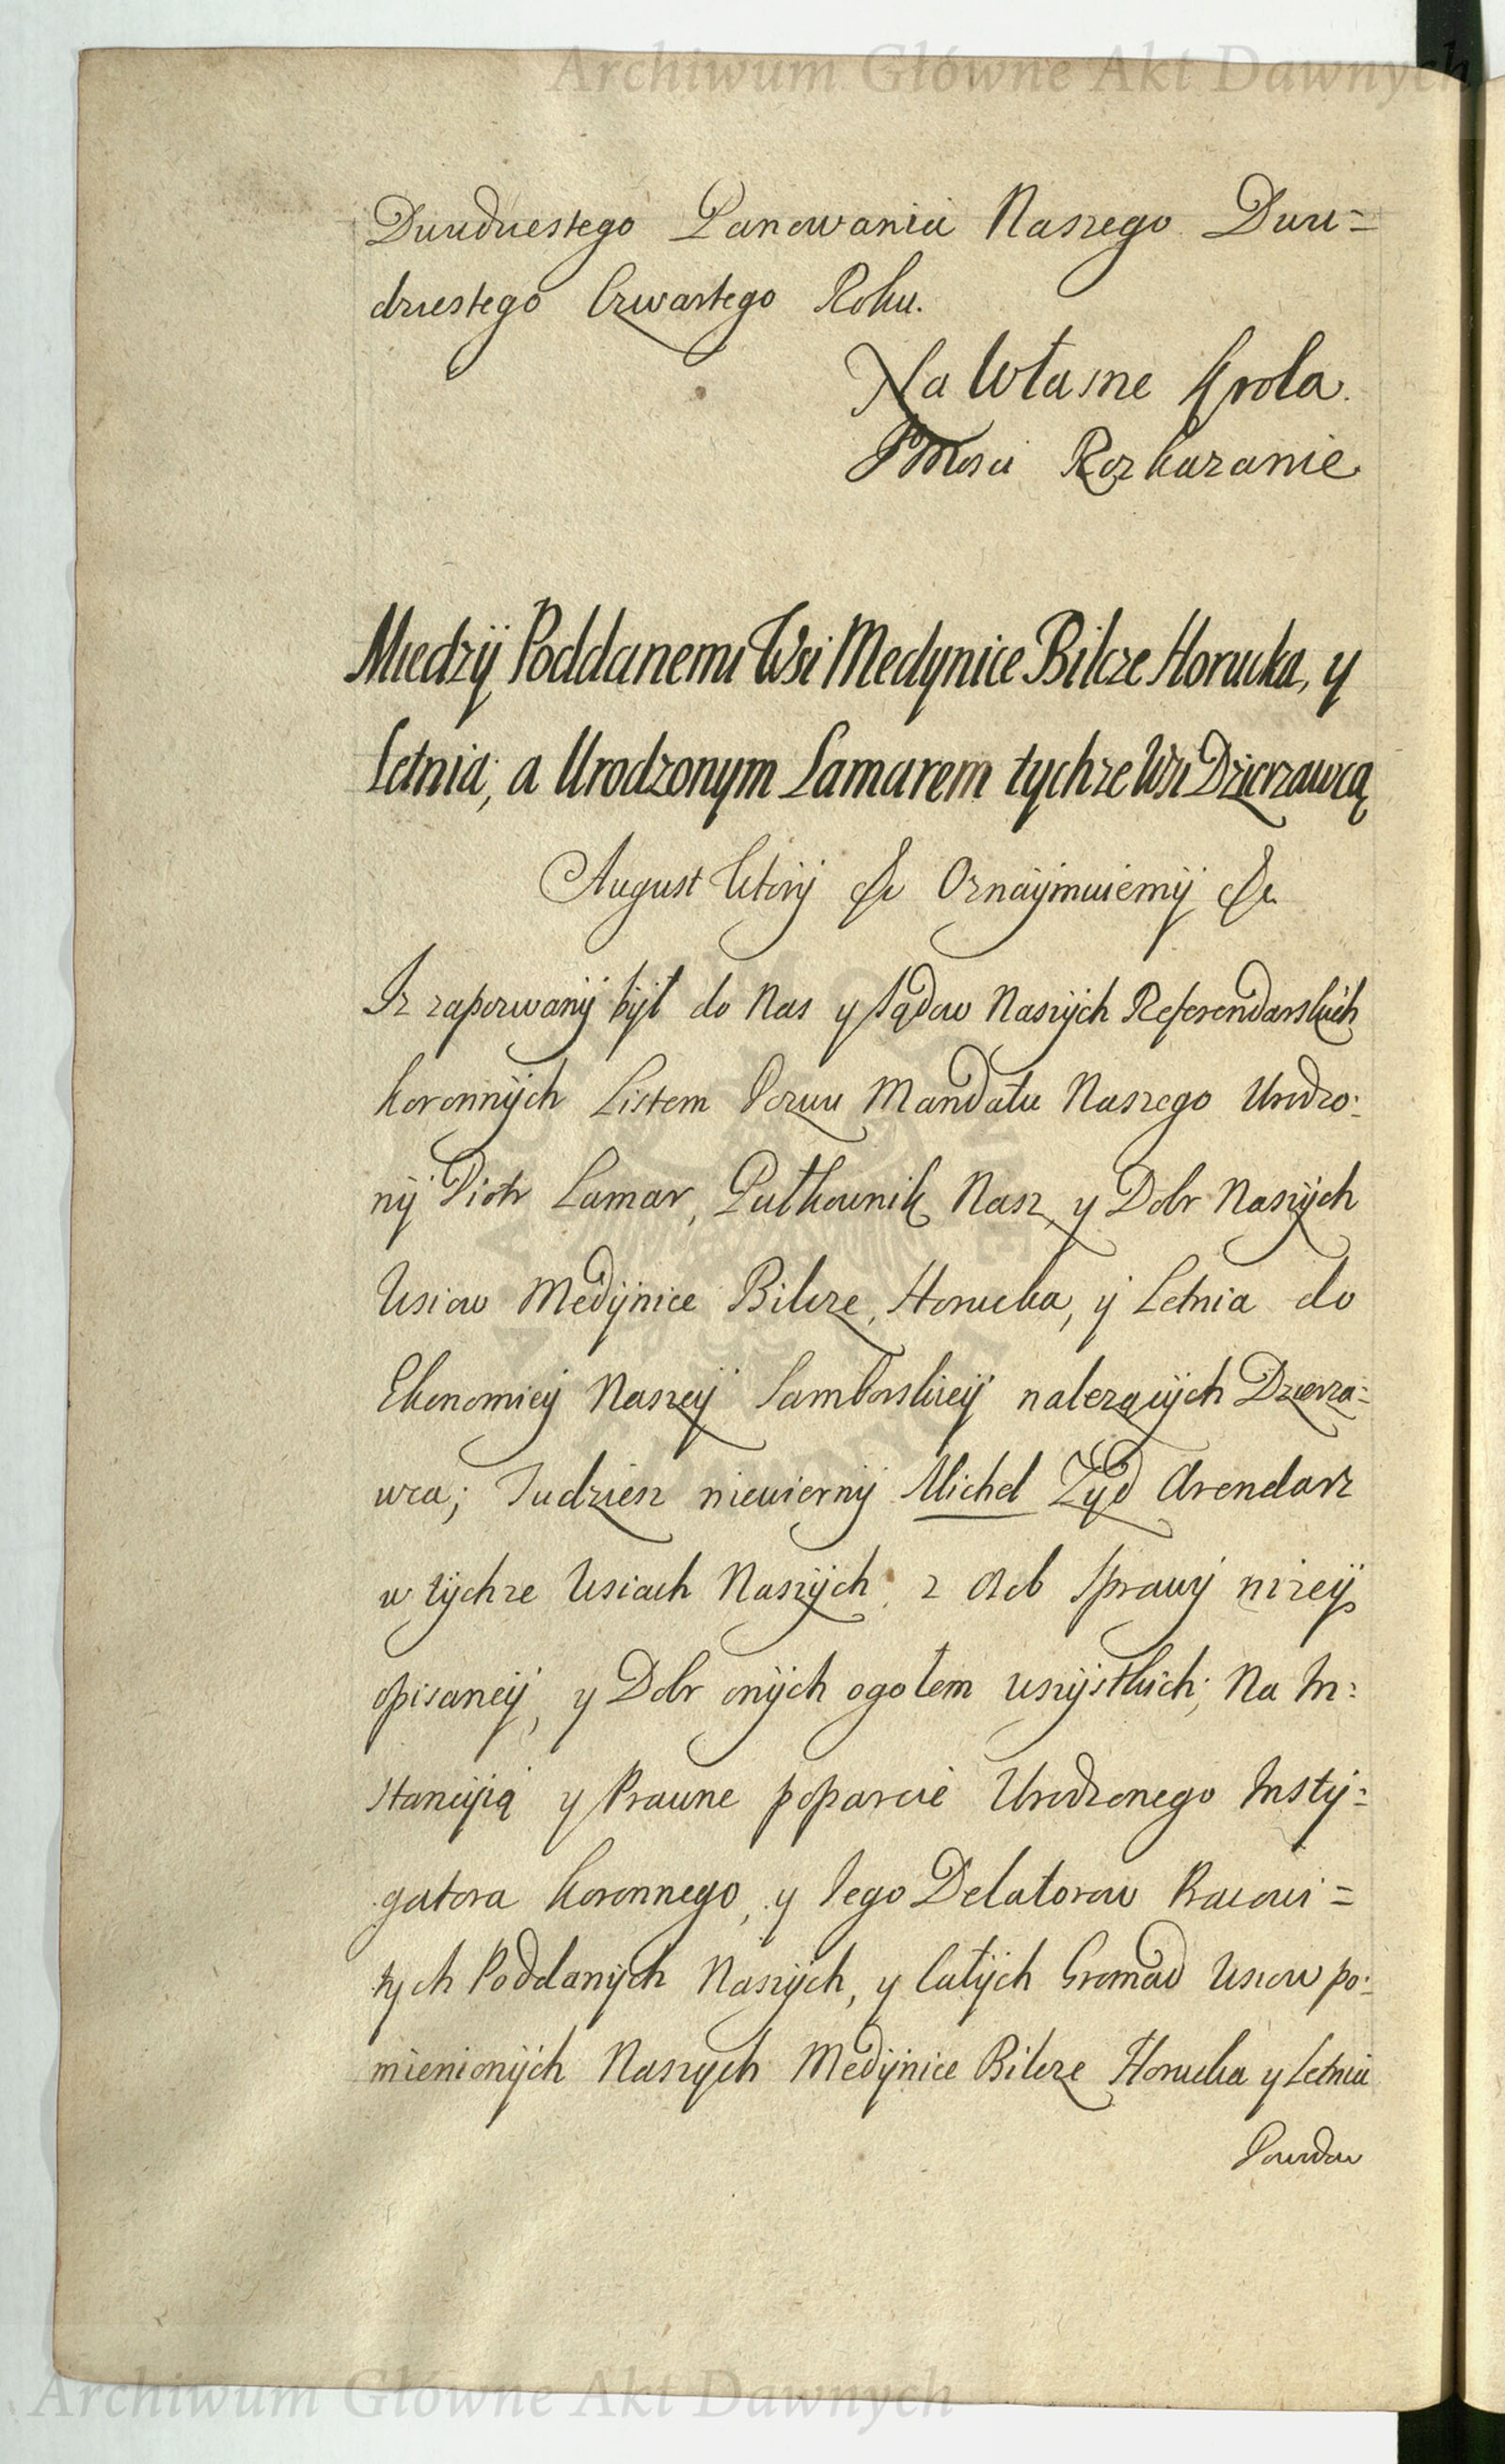 Archiwum Główne Akt Dawnych
Dwudziestego Panowania Naszego Dwu=
dziestego Czwartego Roku.
Na Własne Krola
JMosci Rozkazanie
Miedzÿ Poddanemi Wsi Medynice Bilcze Horucka, y
Letnia; a Urodzonym Lamarem tychze Wsi Dzierzawcą
August Wtorÿ &c Oznaÿmuiemÿ &c
Iz zapozwanÿ bÿł do Nas y Sądow Naszÿch Referendarskich
Koronnÿch Listem Pozwu Mandatu Naszego Urodzo:
nÿ Piotr Lamar, Pułkownik Nasz, y Dobr Naszÿch
Wsiow Medÿnice Bilcze, Horucka, ÿ Letnia do
Ekonomieÿ Naszeÿ Samborskieÿ nalezącÿch Dzierza:
wca; Tudziesz niewiernÿ Michel Zÿd Arendarz
w tÿchze Wsiach Naszÿch z Osob Sprawÿ nizeÿ
opisaneÿ, y Dobr onÿch ogołem wszÿstkich; Na In:
stancÿią y Prawne poparcie Urodzonego Instÿ:
gatora Koronnego, y Iego Delatorow Pracowi=
tych Poddanÿch Naszÿch, y całÿch Gromad Wsiow po:
mienionÿch Naszych Medÿnice Bilcze Horucka y Letnia
Powodow
Archiwum Główne Akt Dawnych